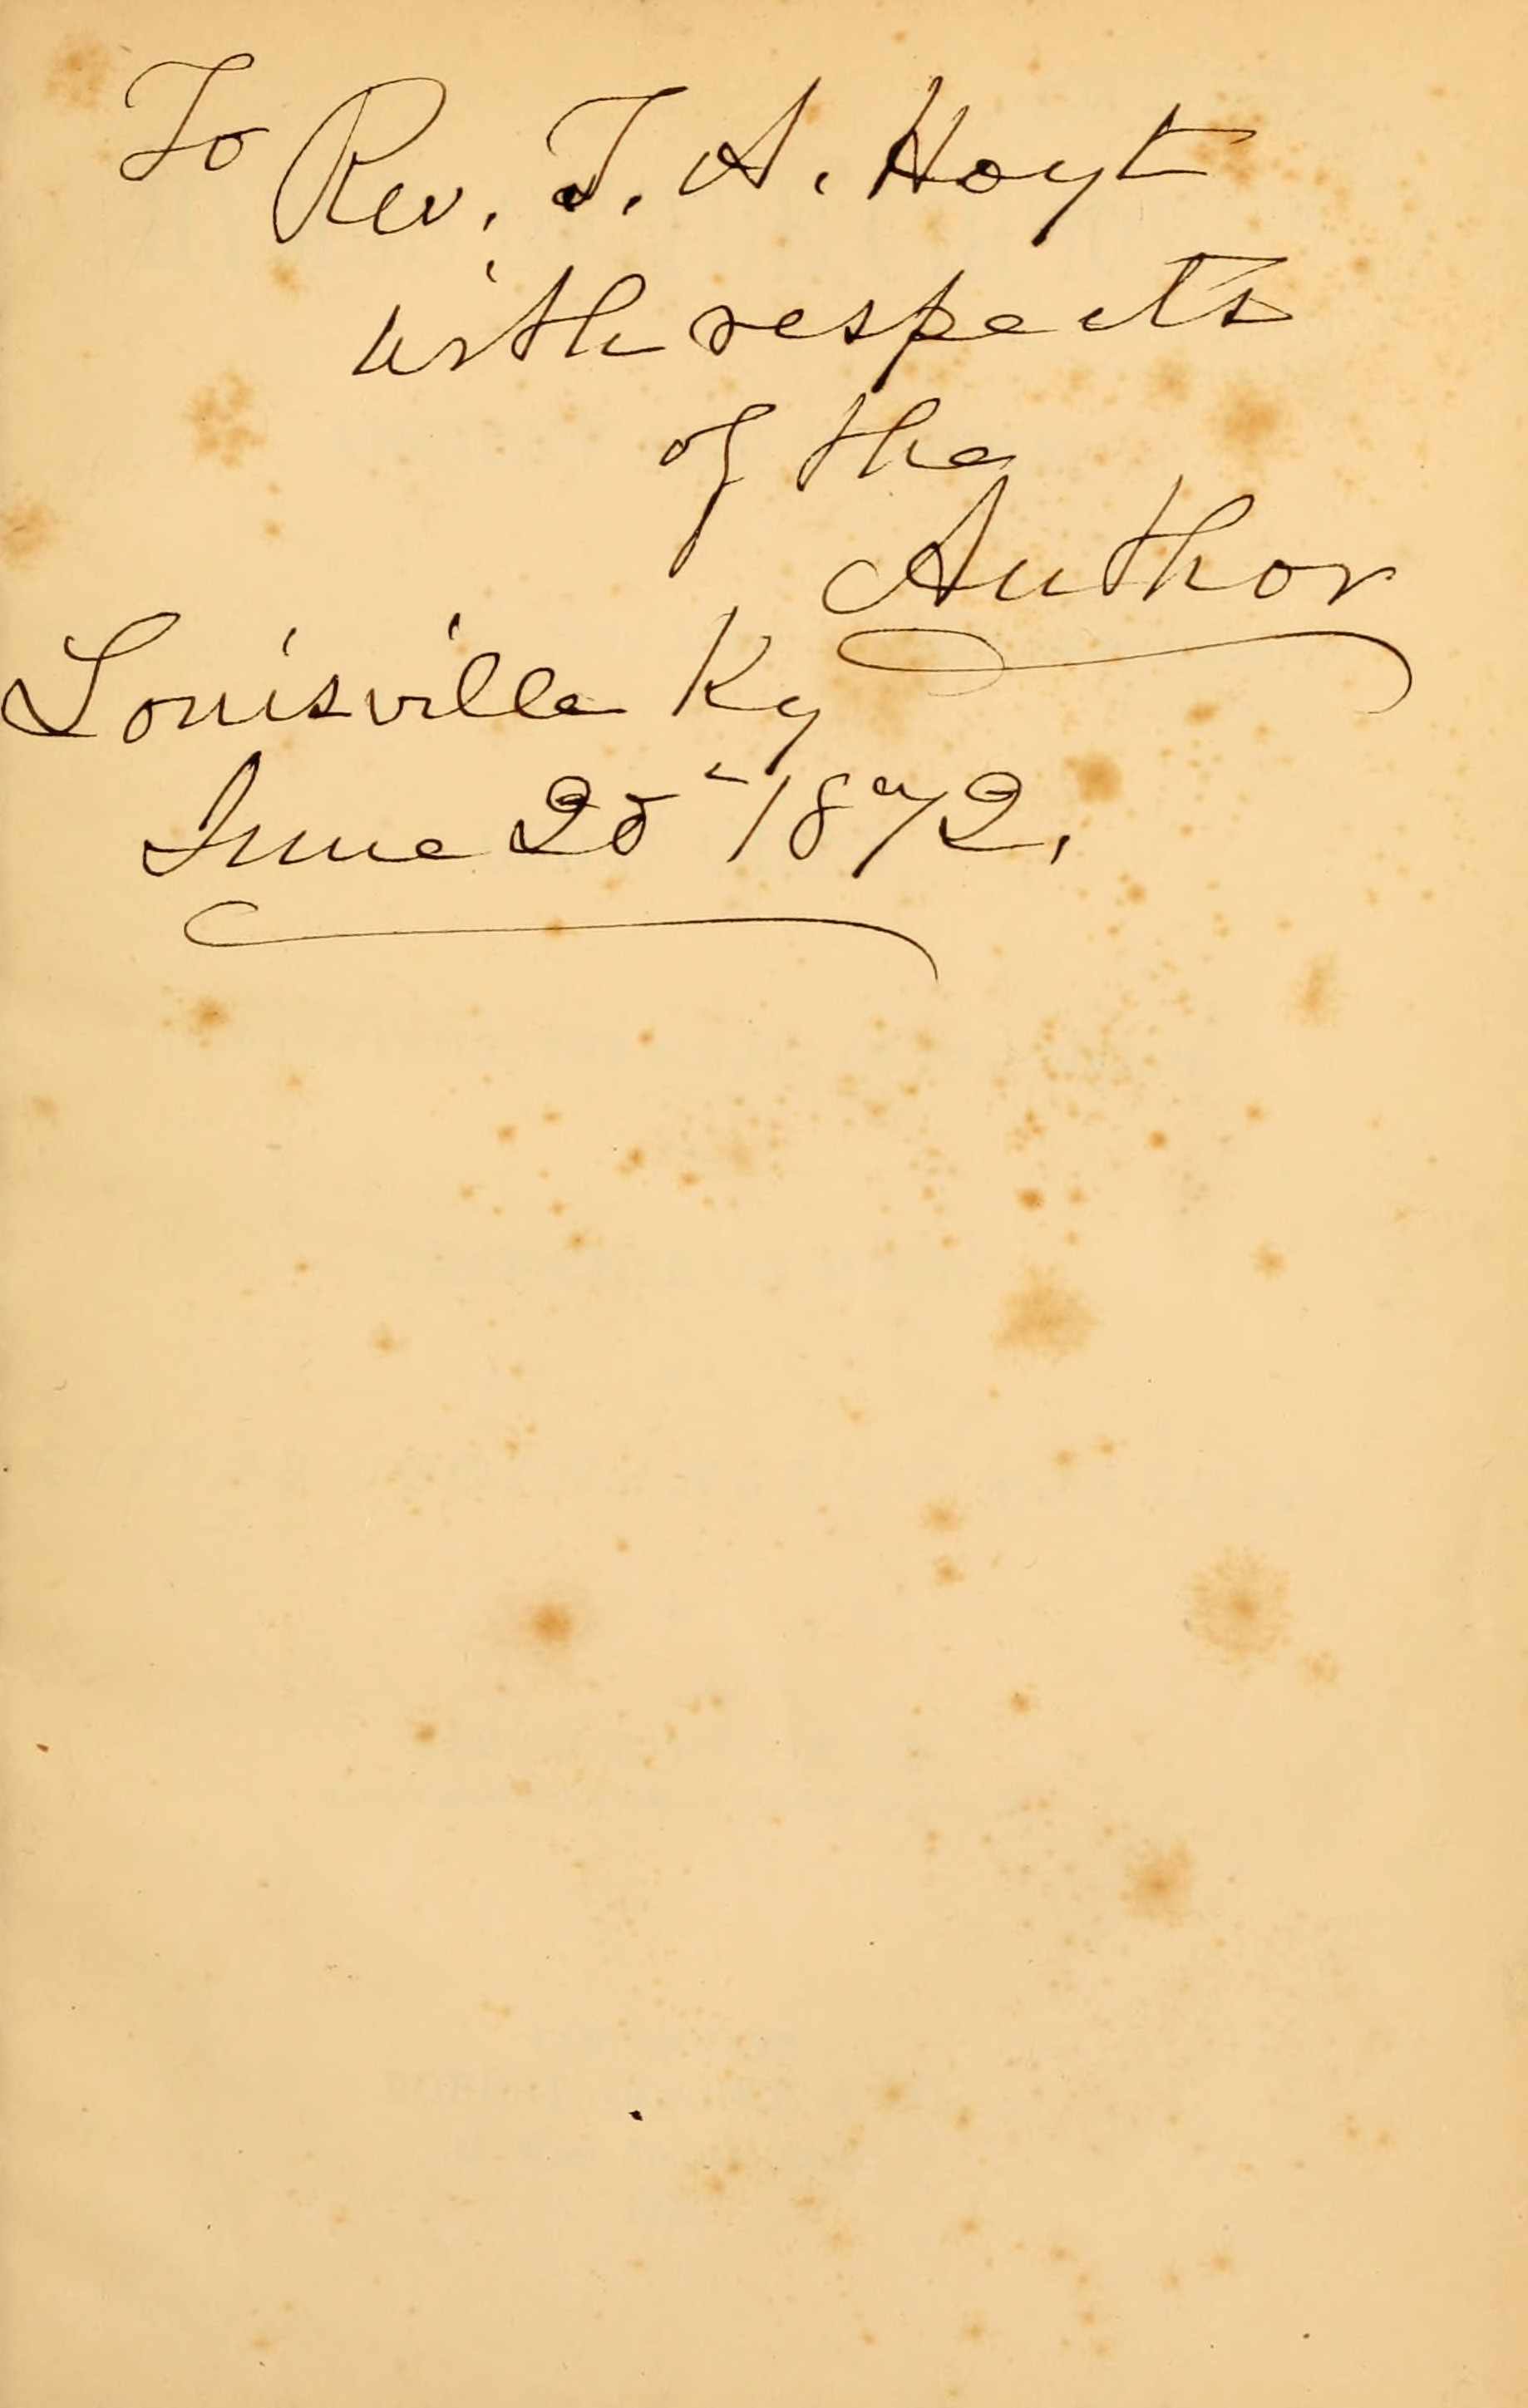 To Rev. T. A. Hoyt
with respects
of the
Author
Louisville Ky
June 25 1872.